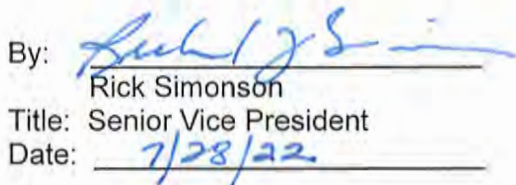 By:
Rick Simonson
Title: Senior Vice President
Date: 7/28/22